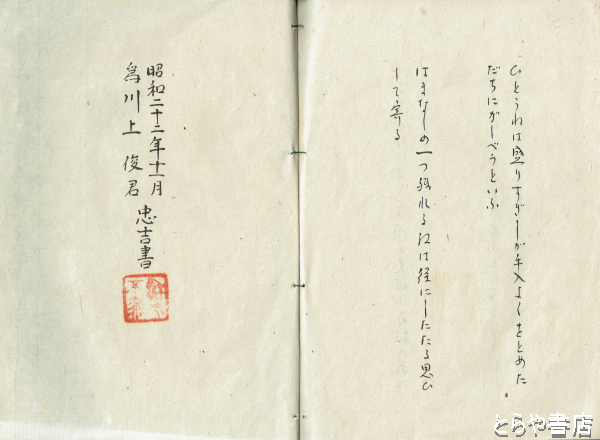 ひとうねは盛りすぎしが手入よくをとめだ
だちにがしべうといふ
はまなしの一つ残れる紅は径にしたたる思ひ
して寄る
昭和二十二年十一月
為川上俊君
忠吉書
とらや書店